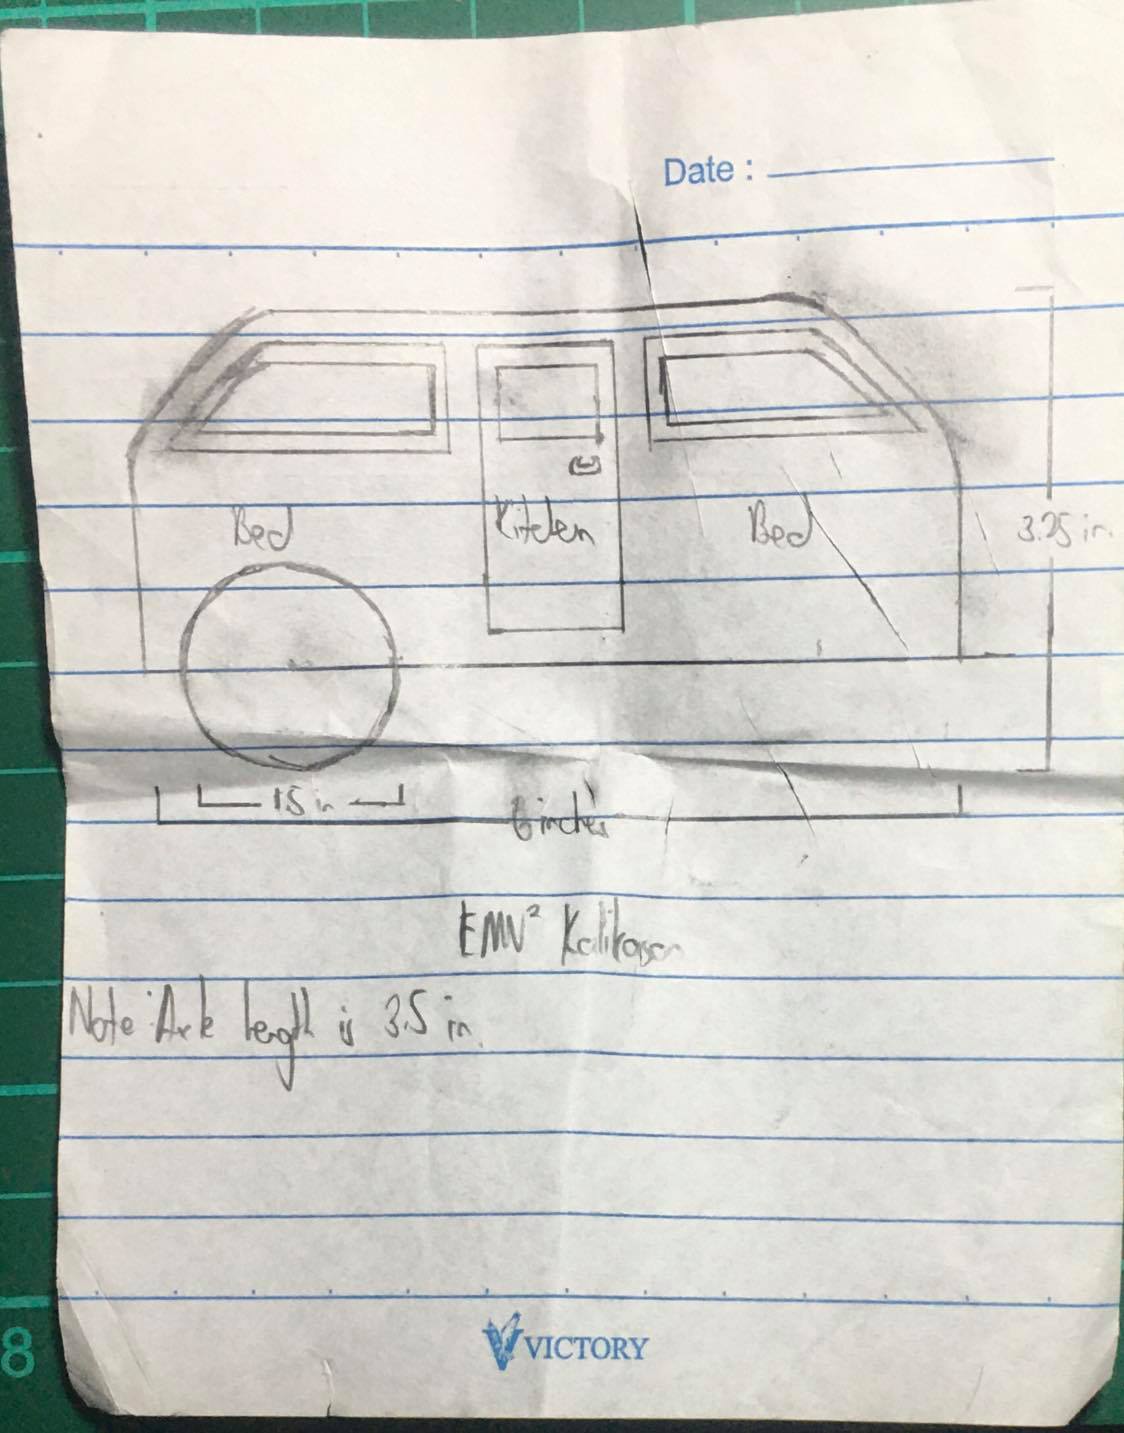 Date :
Bed Kitchen Bed
3.25 in.
1.5 in
6 inches
EMV² Kalikasan
Note: Axle length is 3.5 in.
8
VICTORY